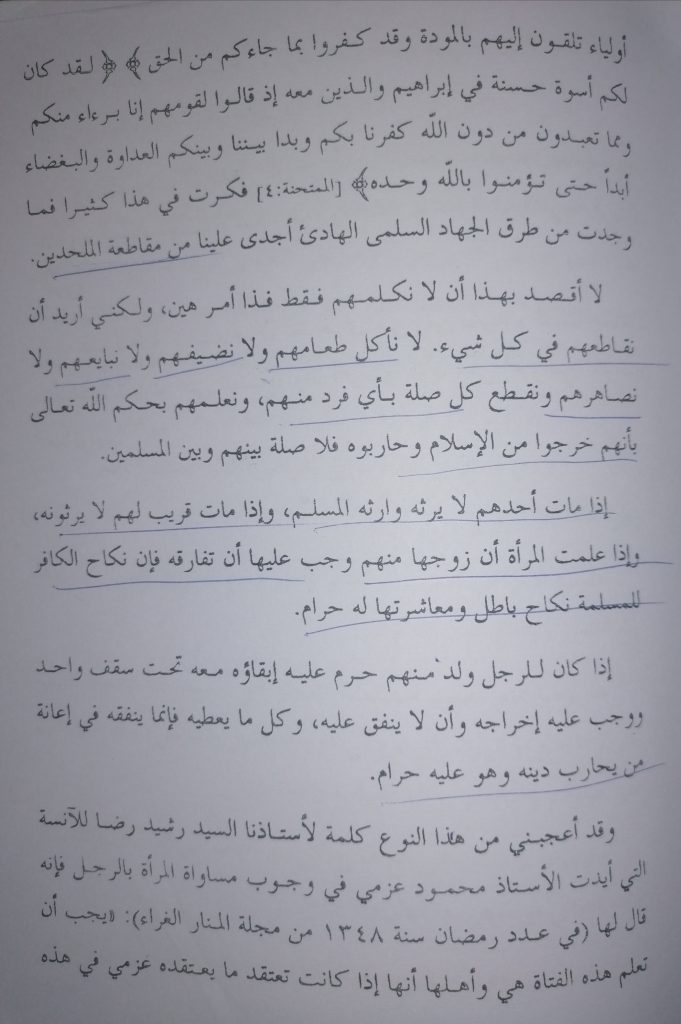 أولياء تلقون إليهم بالمودة وقد كفروا بما جاءكم من الحق﴾ ﴿لقد كان
لكم أسوة حسنة في إبراهيم والذين معه إذ قالوا لقومهم إنا برءاء منكم
ومما تعبدون من دون الله كفرنا بكم وبدا بيننا وبينكم العداوة والبغضاء
أبداً حتى تؤمنوا بالله وحده﴾ [الممتحنة:٤] فكرت في هذا كثيرا فما
وجدت من طرق الجهاد السلمى الهادئ أجدى علينا من مقاطعة الملحدين.
لا أقصد بهذا أن لا نكلمهم فقط فذا أمر هين، ولكني أريد أن
نقاطعهم في كل شيء. لا نأكل طعامهم ولا نضيفهم ولا نبايعهم ولا
نصاهرهم ونقطع كل صلة بأي فرد منهم، ونعلمهم بحكم الله تعالى
بأنهم خرجوا من الإسلام وحاربوه فلا صلة بينهم وبين المسلمين.
إذا مات أحدهم لا يرثه وارثه المسلم، وإذا مات قريب لهم لا يرثونه،
وإذا علمت المرأة أن زوجها منهم وجب عليها أن تفارقه فإن نكاح الكافر
للمسلمة نكاح باطل ومعاشرتها له حرام.
إذا كان للرجل ولد منهم حرم عليه إبقاؤه معه تحت سقف واحد
ووجب عليه إخراجه وأن لا ينفق عليه، وكل ما يعطيه فإنما ينفقه في إعانة
من يحارب دينه وهو عليه حرام.
وقد أعجبني من هذا النوع كلمة لأستاذنا السيد رشيد رضا للآنسة
التي أيدت الأستاذ محمود عزمي في وجوب مساواة المرأة بالرجل فإنه
قال لها (في عدد رمضان سنة ١٣٤٨ من مجلة المنار الغراء): «يجب أن
تعلم هذه الفتاة هي وأهلها أنها إذا كانت تعتقد ما يعتقده عزمي في هذه